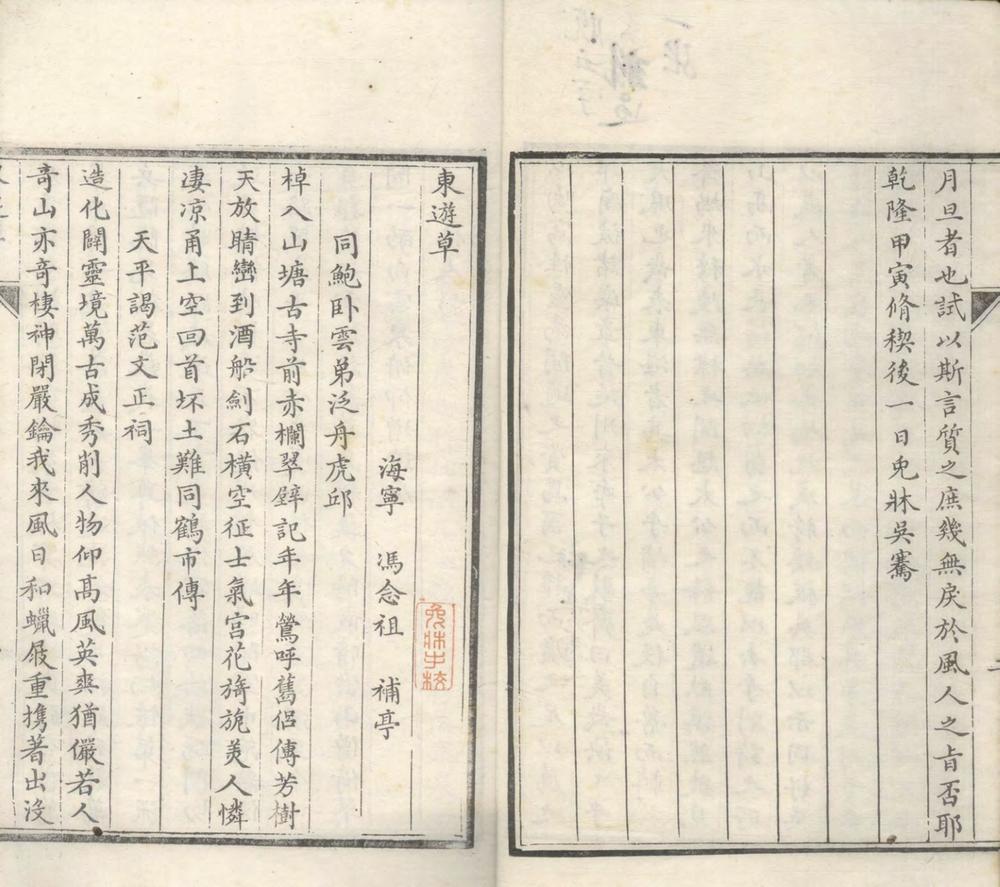 月旦者也試以斯言質之庶幾無戾於風人之旨否耶
乾隆甲寅脩稧後一日免牀吳騫
東遊草
海寧 馮念祖 補亭
同鮑卧雲弟泛舟虎邱
棹入山塘古寺前赤欄翠壁記年年鶯呼舊侶傳芳樹
天放晴巒到酒船劍石橫空征士氣宫花旖旎美人憐
凄凉甬上空回首坏土難同鶴市傳
天平謁范文正祠
造化闢靈境萬古成秀削人物仰髙風英爽猶儼若人
竒山亦竒棲神閉嚴鑰我來風日和蠟屐重擕著出沒